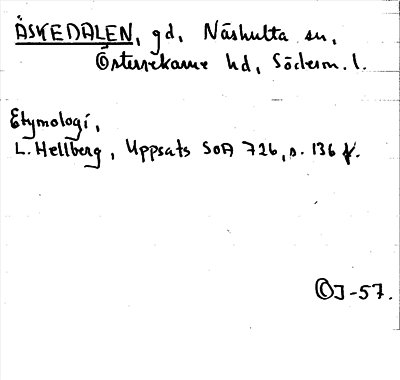 ÄSKEDALEN, gd, Näshulta sn,
Österrekarne hd, Söderm. l.
Etymologi,
L. Hellberg, Uppsats SOA 726, s. 136 f.
ÖJ -57.